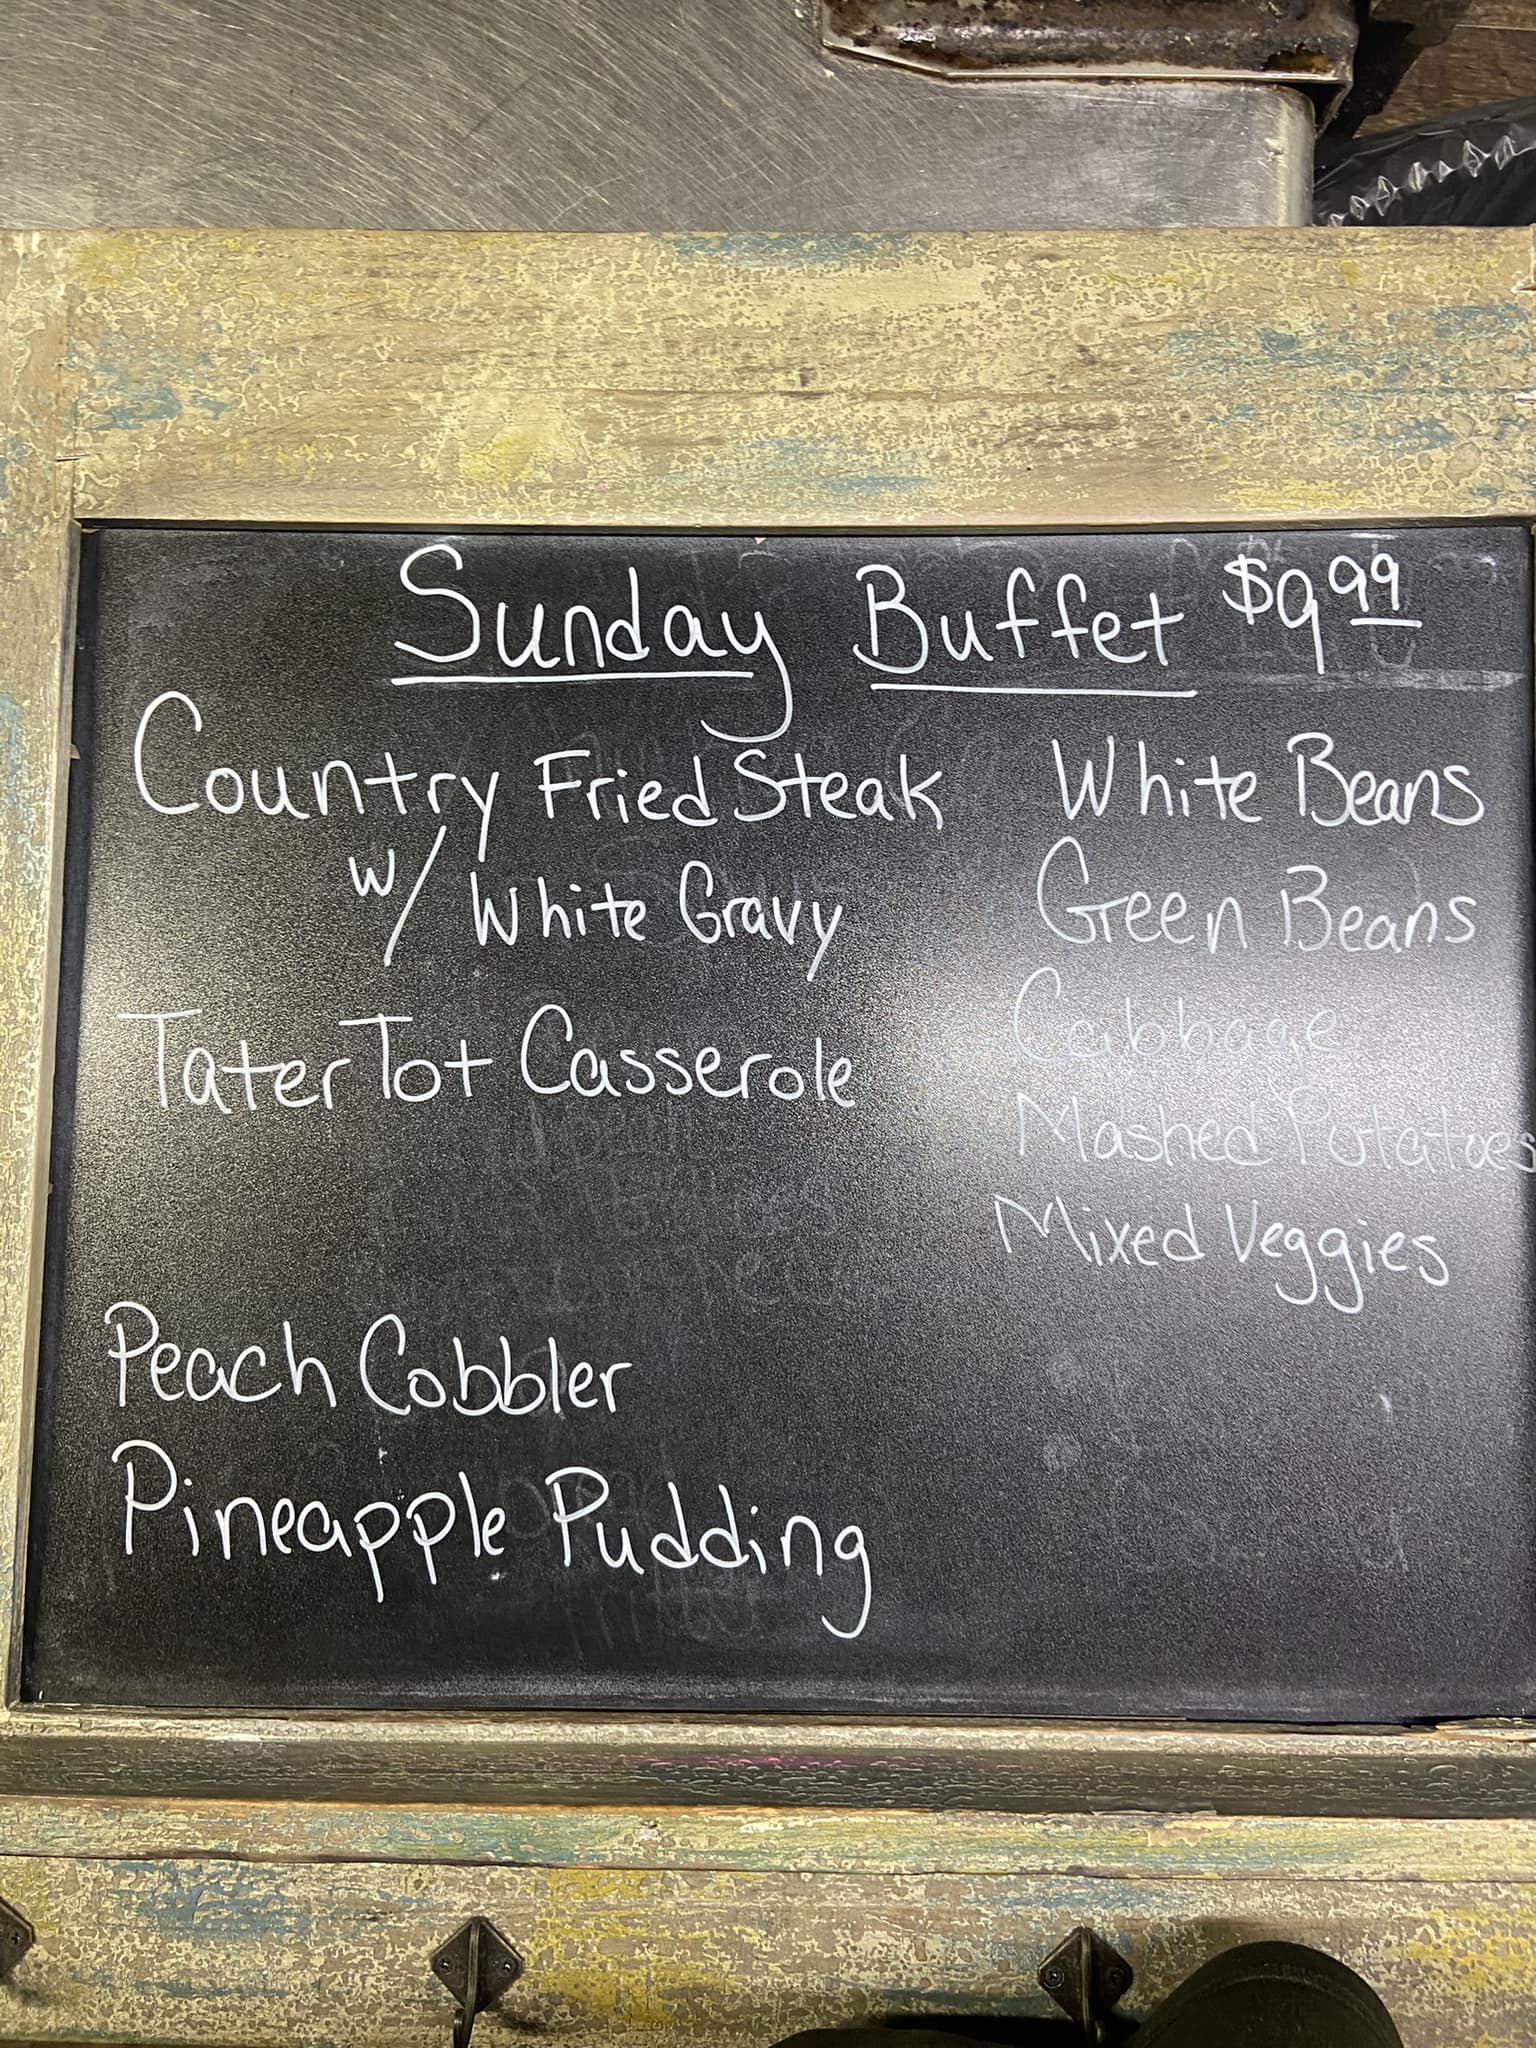 Sunday Buffet $9.99
Country Fried Steak
w/ White Gravy
Tater Tot Casserole
Peach Cobbler
Pineapple Pudding
White Beans
Green Beans
Cabbage
Mashed Potatoes
Mixed Veggies